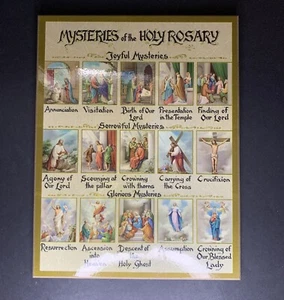 Mysteries of the Holy Rosary
Joyful Mysteries
Annunciation Visitation Birth of Our Lord Presentation in the Temple Finding of Our Lord
Sorrowful Mysteries
Agony of Our Lord Scourging at the pillar Crowning with thorns Carrying of the Cross Crucifixion
Glorious Mysteries
Resurrection Ascension into Heaven Descent of the Holy Ghost Assumption Crowning of Our Blessed Lady